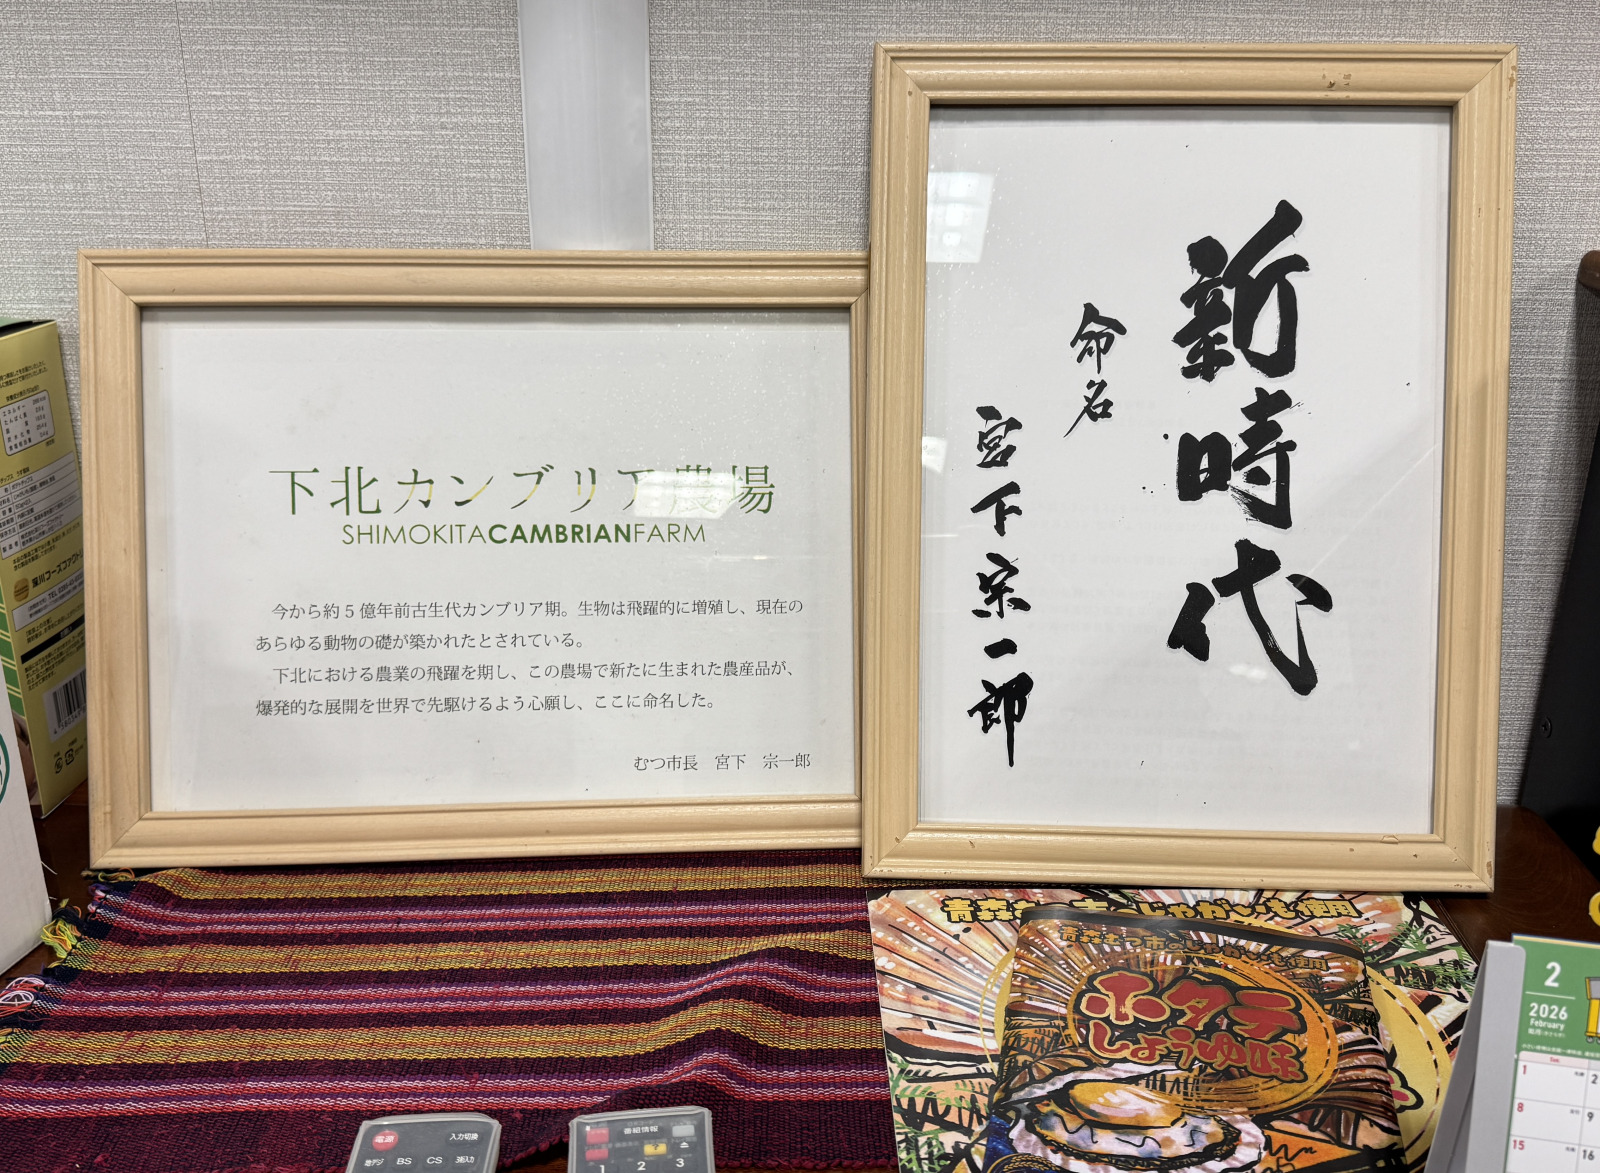 下北カンブリア農場
SHIMOKITACAMBRIANFARM
今から約5億年前古生代カンブリア期。生物は飛躍的に増殖し、現在の
あらゆる動物の礎が築かれたとされている。
下北における農業の飛躍を期し、この農場で新たに生まれた農産品が、
爆発的な展開を世界で先駆けるよう心願し、ここに命名した。
むつ市長 宮下 宗一郎
新時代
命名
宮下宗一郎
青森むつ市のじゃがいも使用
ホタテ
しょうゆ味
深川フーズファクトリ
電源
入力切換
地デジ BS CS
番組情報
1 2 3
2
2026
February
1
8
15
2
9
16